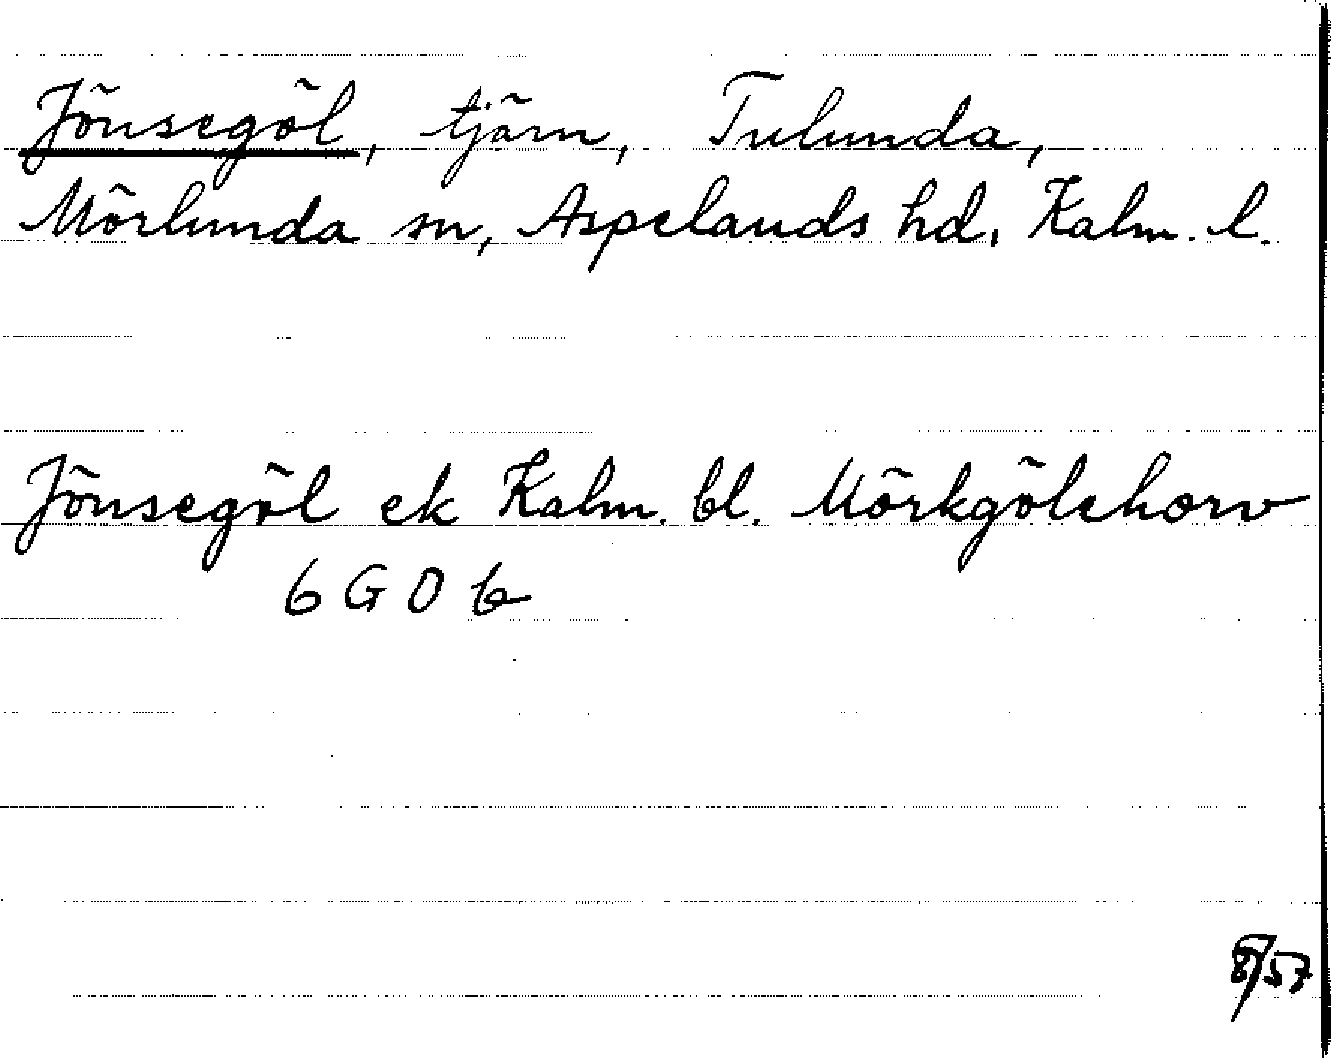 Jönsegöl, tjärn, Tulunda,
Mörlunda sn, Aspelands hd, Kalm. l.
Jönsegöl ek Kalm. bl. Mörkgölehorv
6 G 0 b
8/57